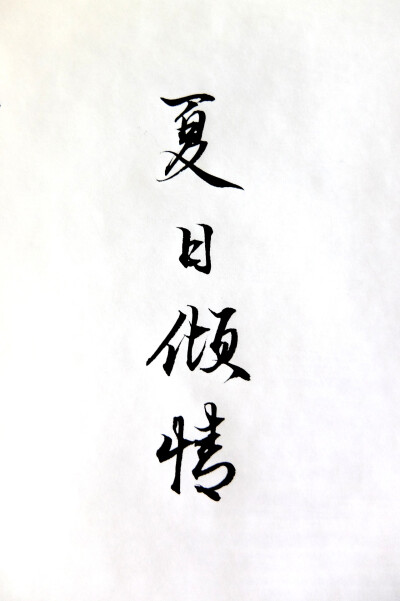 夏日倾情